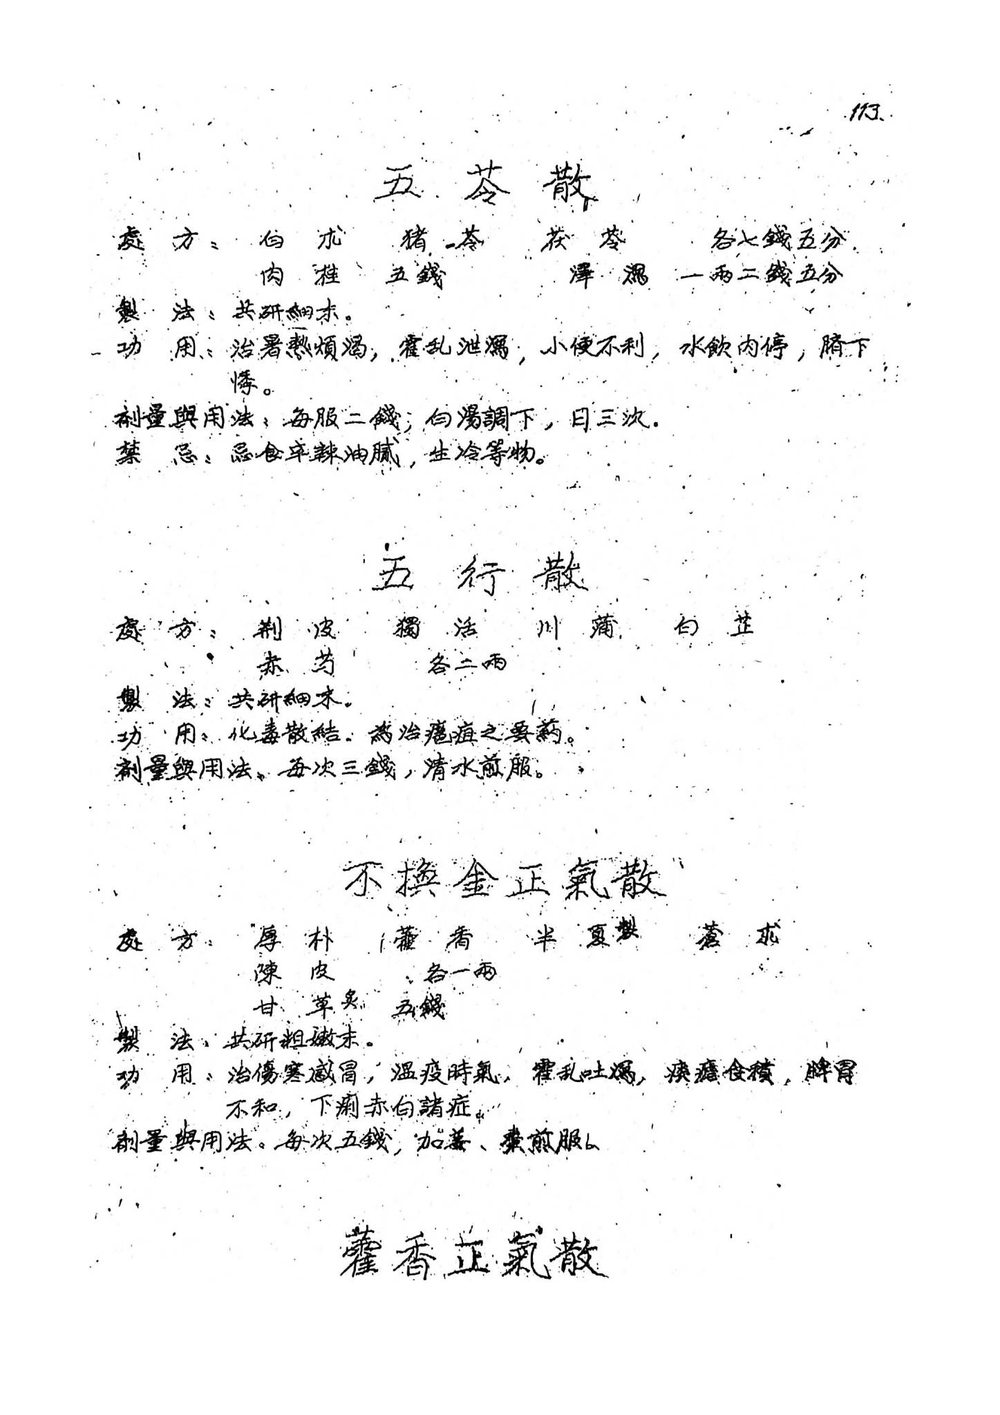 113.
五苓散
處方：白朮 猪苓 茯苓 各七錢五分
肉桂 五錢 澤瀉 一兩二錢五分
製法：共研細末。
功用：治暑熱煩渴，霍乱泄瀉，小便不利，水飲內停，臍下
悸。
劑量與用法：每服二錢，白湯調下，日三次.
禁忌：忌食辛辣油膩，生冷等物。
五行散
處方：荆皮 獨活 川蒲 白芷
赤芍 各二兩
製法：共研細末。
功用：化毒散結. 為治瘡疽之要药。
劑量與用法。每次三錢，清水煎服。
不換金正氣散
處方：厚朴 藿香 半夏製 蒼朮
陳皮 各一兩
甘草炙 五錢
製法：共研粗嫩末。
功用：治傷寒感冒，溫疫時氣，霍乱吐瀉，痰瘧食積，脾胃
不和，下痢赤白諸症。
劑量與用法。每次五錢，加姜、棗煎服。
藿香正氣散